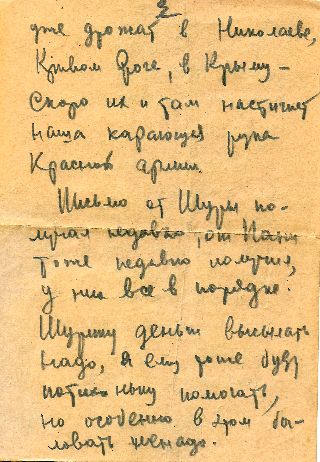 2
уже дрожат в Николаеве,
Кривом Роге, в Крыму –
Скоро их и там настигнет
наша карающая рука
Красной армии.
Письмо от Шуры по-
лучил недавно, от Пани
тоже недавно получил,
у них все в порядке.
Шурику деньги высылать
надо, я ему тоже буду
потихоньку помогать,
но особенно в этом ба-
ловать ненадо.